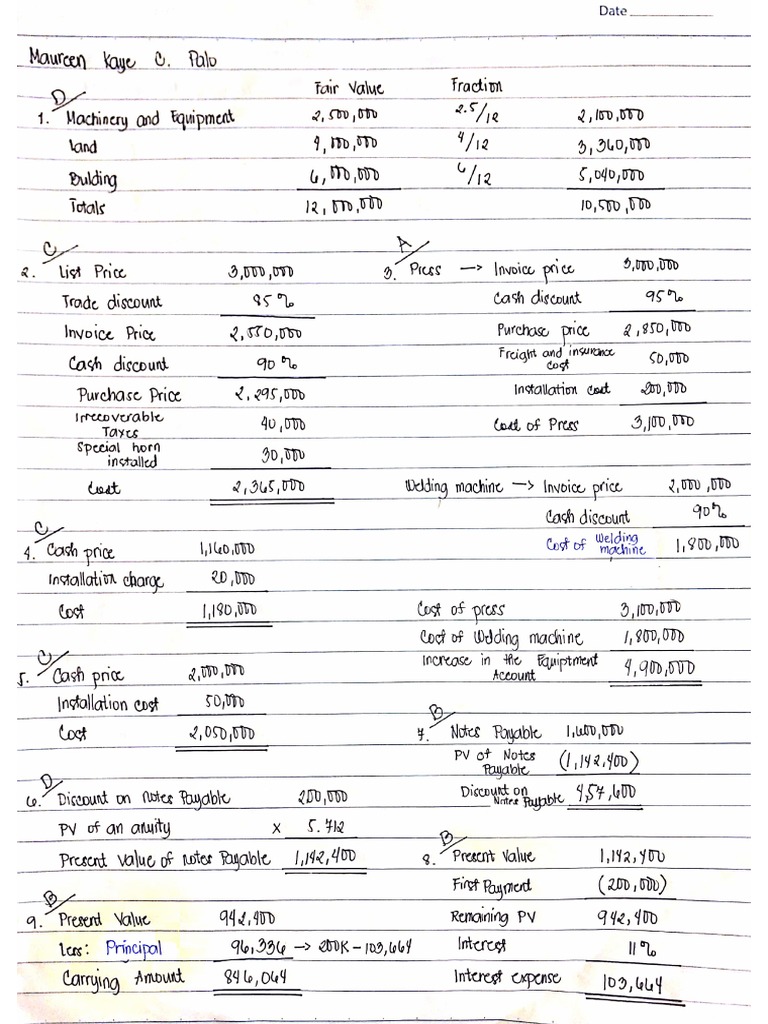 Date
Maureen Kaye C. Palo
Fair Value Fraction
D
1. Machinery and Equipment 2,500,000 2.5/12 2,100,000
Land 4,000,000 4/12 3,360,000
Building 6,000,000 6/12 5,040,000
Totals 12,000,000 10,500,000
C
2. List Price 3,000,000
Trade discount 85%
Invoice Price 2,550,000
Cash discount 90%
Purchase Price 2,295,000
Irrecoverable
Taxes 40,000
Special horn
installed 30,000
Cost 2,365,000
A
3. Press → Invoice price 3,000,000
Cash discount 95%
Purchase price 2,850,000
Freight and insurance
cost 50,000
Installation cost 200,000
Cost of Press 3,100,000
Welding machine → Invoice price 2,000,000
Cash discount 90%
Cost of Welding
machine 1,800,000
Cost of press 3,100,000
Cost of Welding machine 1,800,000
Increase in the Equiptment
Account 4,900,000
C
4. Cash price 1,160,000
Installation charge 20,000
Cost 1,180,000
C
5. Cash price 2,000,000
Installation cost 50,000
Cost 2,050,000
D
6. Discount on Notes Payable 200,000
PV of an anuity x 5.712
Present Value of Notes Payable 1,142,400
B
7. Notes Payable 1,600,000
PV of Notes
Payable (1,142,400)
Discount on
Notes Payable 4,57,600
B
8. Present Value 1,142,400
First Payment (200,000)
Remaining PV 942,400
Interest 11%
Interest expense 103,664
B
9. Present Value 942,400
Less: Principal 96,336 → 200K - 103,664
Carrying Amount 846,064